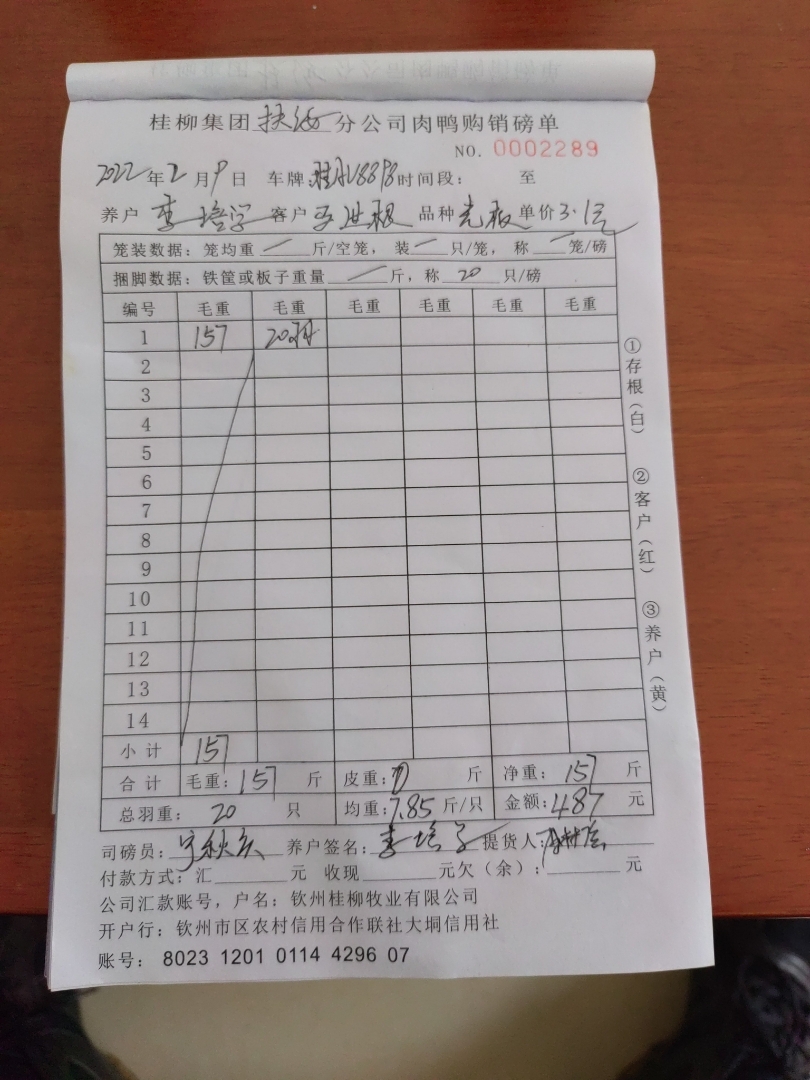 桂柳集团扶绥分公司肉鸭购销磅单
NO. 0002289
2022年2月9日 车牌:桂AU8898时间段: 至
养户 李培学 客户 品种 光板 单价3.1元
笼装数据:笼均重 一 斤/空笼,装 一 只/笼,称 一 笼/磅
捆脚数据:铁筐或板子重量 一 斤,称 20 只/磅
编号 毛重 毛重 毛重 毛重 毛重 毛重
1 157 20羽
2
3
4
5
6
7
8
9
10
11
12
13
14
小计 157
合计 毛重:157 斤 皮重:0 斤 净重:157 斤
总羽重: 20 只 均重:7.85斤/只 金额:487 元
司磅员: 养户签名: 李培学 提货人:
付款方式:汇 元 收现 元欠(余): 元
公司汇款账号,户名:钦州桂柳牧业有限公司
开户行:钦州市区农村信用合作联社大垌信用社
账号: 8023 1201 0114 4296 07
①存根(白) ②客户(红) ③养户(黄)